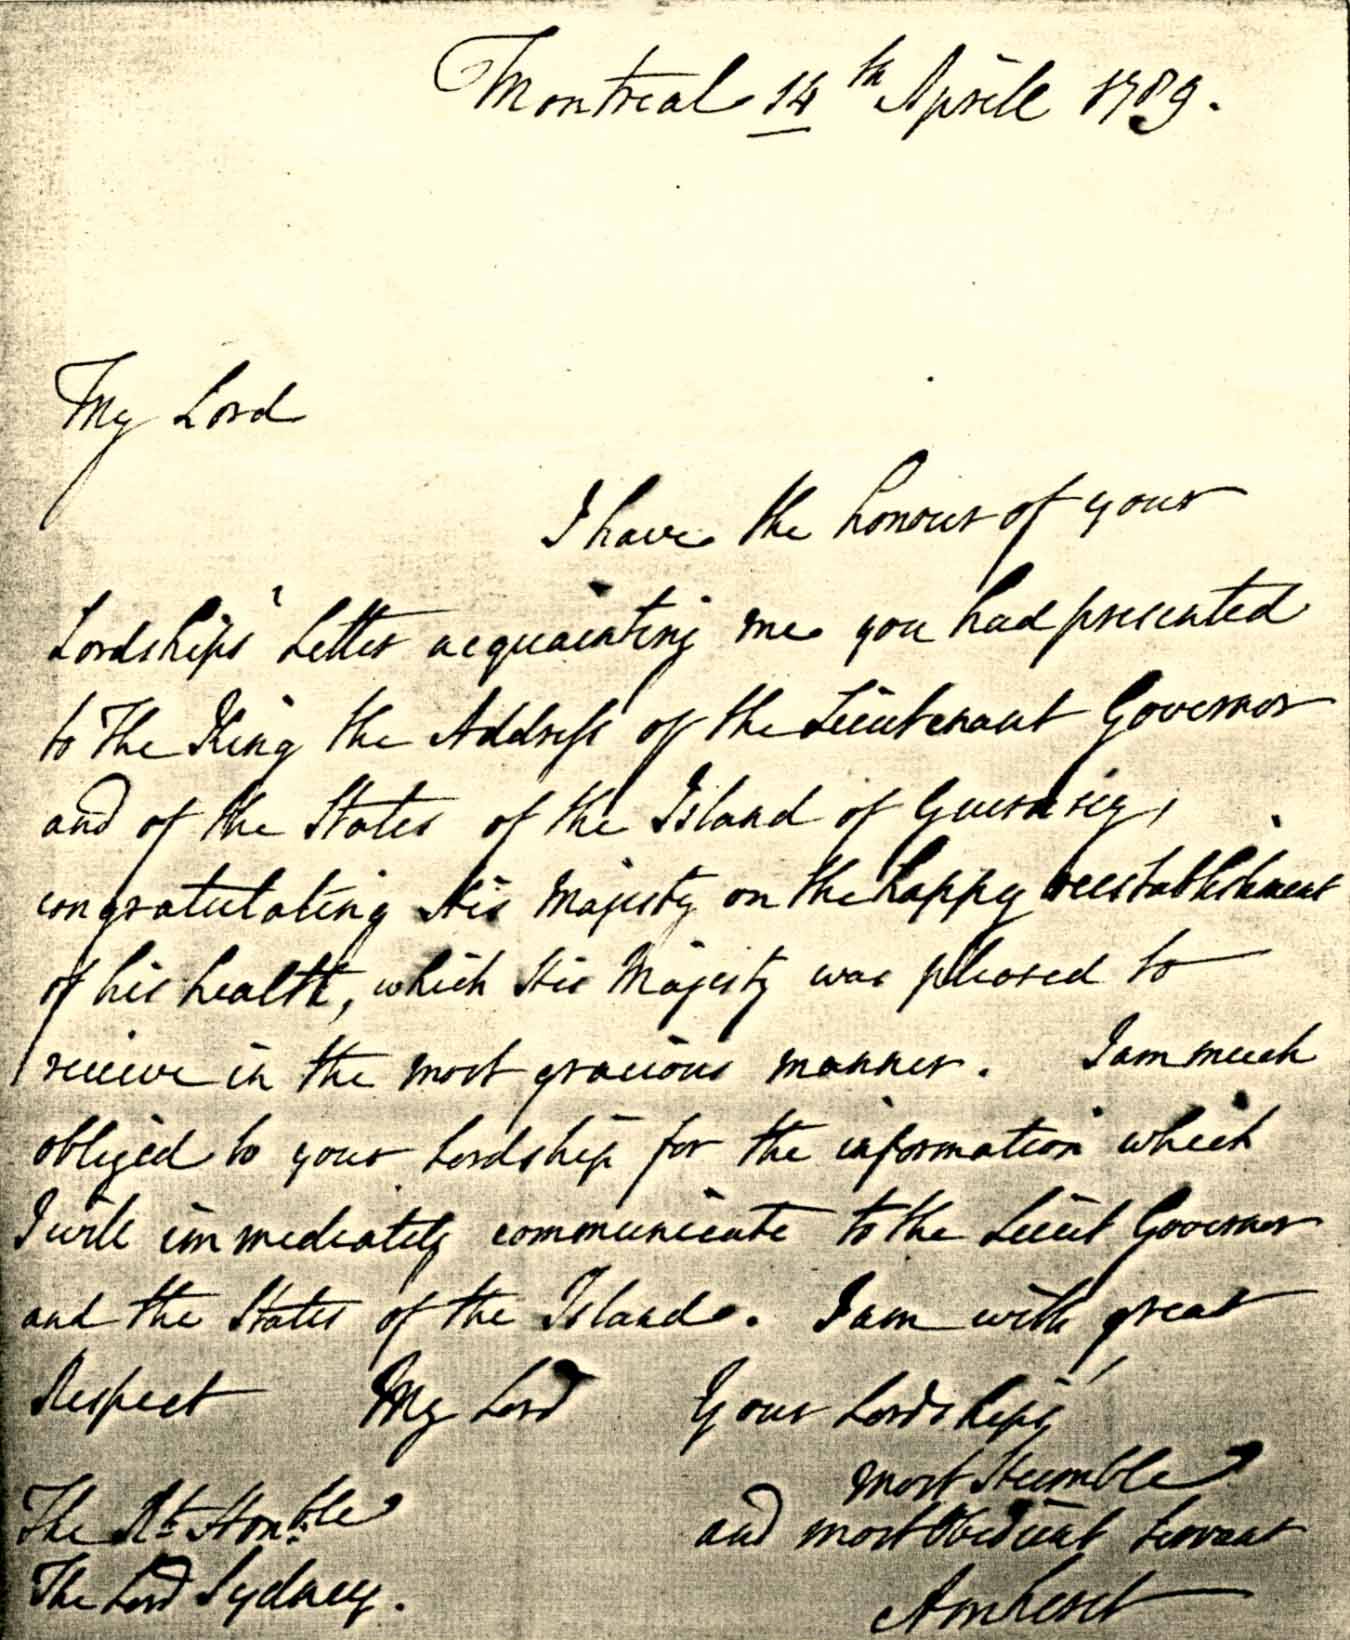 Montreal 14th Aprill 1789.
My Lord
I have the honour of your
Lordships' Letter acquainting me you had presented
to The King the Address of the Lieutenant Governor
and of the States of the Island of Guernsey,
congratulating His Majesty on the happy reestablishment
of his health, which His Majesty was pleased to
receive in the most gracious manner. I am much
obliged to your Lordship for the information which
I will immediately communicate to the Lieut Governor
and the States of the Island. I am with great
Respect My Lord Your Lordships'
most Humble
and most Obedient Servant
The Rt Honble
The Lord Sydney.
Amherst